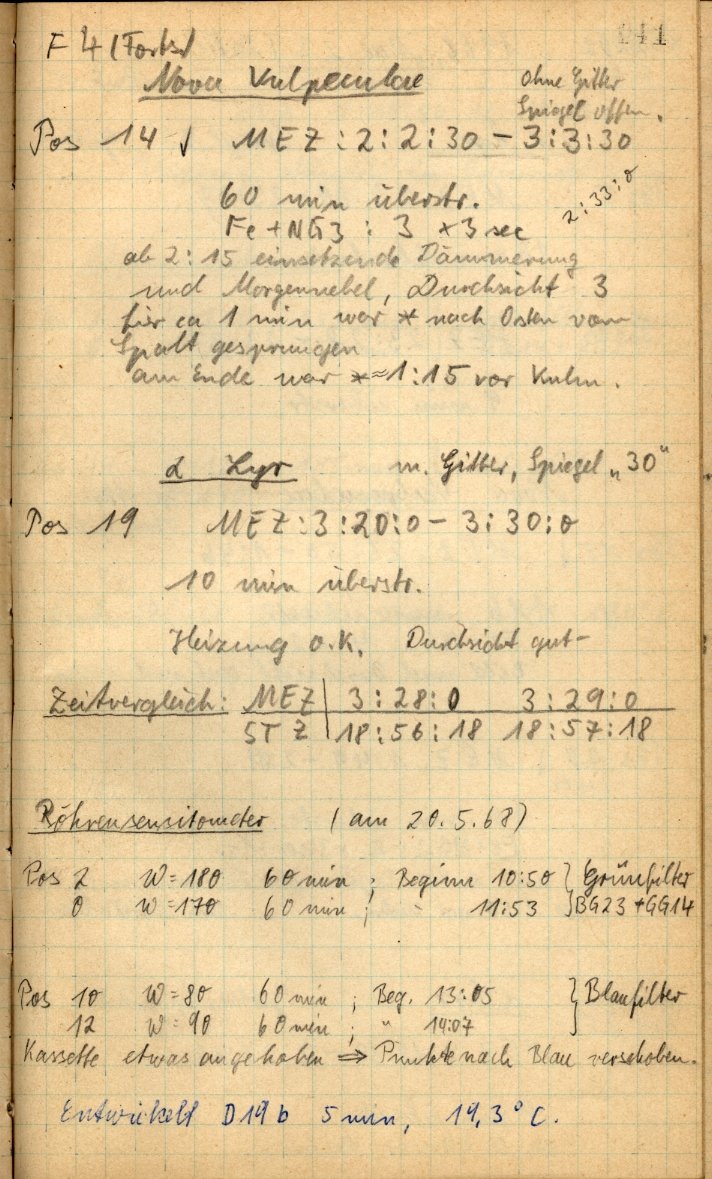 041
F 4 (Forts)
Nova Vulpeculae
ohne Gitter
Spiegel offen.
Pos 14 √ MEZ : 2 : 2 : 30 – 3 : 3 : 30
60 min überstr.
2 : 33 : 0
Fe + NG3 : 3 x 3 sec
ab 2 : 15 einsetzende Dämmerung
und Morgennebel, Durchsicht 3
für ca 1 min war * nach Osten vom
Spalt gesprungen
am Ende war * ≈ 1 : 15 vor Kulm.
α Lyr m. Gitter, Spiegel „30"
Pos 19 MEZ : 3 : 20 : 0 – 3 : 30 : 0
10 min überstr.
Heizung o.K. Durchsicht gut –
Zeitvergleich: MEZ | 3 : 28 : 0 3 : 29 : 0
STZ | 18 : 56 : 18 18 : 57 : 18
Röhrensensitometer (am 20.5.68)
Pos 2 W = 180 60 min ; Beginn 10:50 } Grünfilter
0 W = 170 60 min ; " 11:53 } BG23 + GG14
Pos 10 W = 80 60 min ; Beg. 13:05 } Blaufilter
12 W = 90 60 min ; " 14:07
Kassette etwas angehoben ⇒ Punkte nach Blau verschoben.
Entwickelt D19b 5 min, 19,3° C.